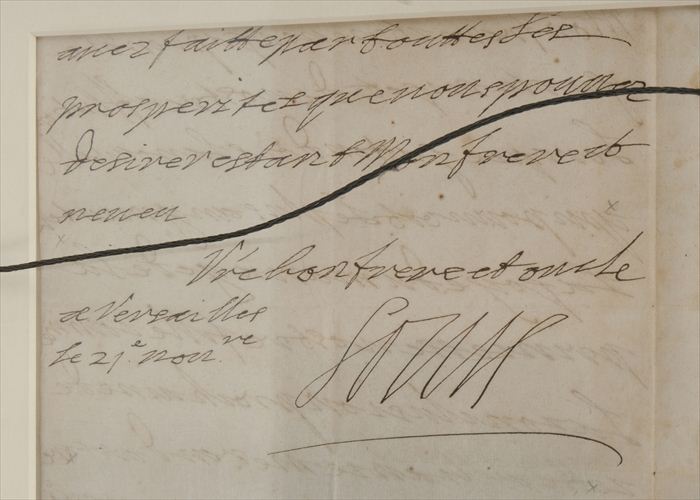 avez faitte par touttes Les
prosperites que vous pouvez
desirer estant Mon frere et
neveu
Vr̃e bon frere et oncle
a Versailles
le 21.e nov.re
Louis